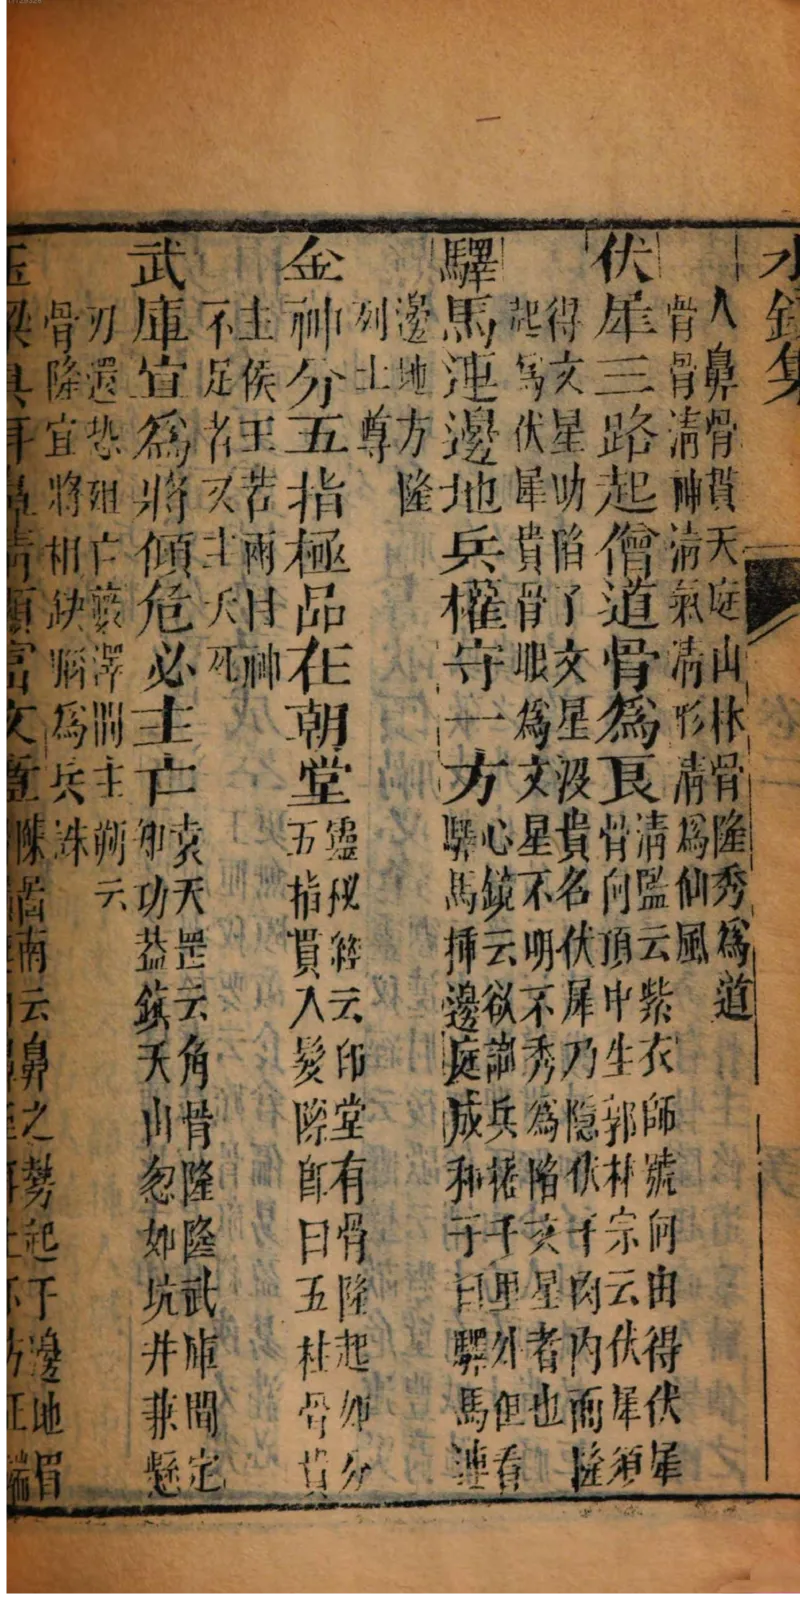 水鏡集
入鼻骨貫天庭山林骨隆秀爲道
骨骨清神清氣清形清爲仙風
伏犀三路起僧道骨爲良
清監云紫衣師號何由得伏犀
骨向頂中生郭林宗云伏犀須
得文星助陷了文星沒貴名伏犀乃隐伏于肉内而隆
起爲伏犀貴骨眼爲文星不明不秀爲陷亥星者也
驛馬連邊地兵權守一方
心鏡云欲識兵權千里外但看
驛馬挿邊庭成和子曰驛馬連
邊地方隆
列土尊
金神分五指極品在朝堂
靈秘經云印堂有骨隆起如分
五指貫入髮際師曰五柱骨貫
主侯王若兩目神
不足者又主夭死
武庫宜爲將傾危必主亡
袁天罡云角骨隆隆武庫間定
知功益鎮天山忽如坑井兼懸
刃還恐殂亡藪澤間主朔云
骨隆宜將相缺陷爲兵誅
陳啚南云鼻之勢起于邊地眉